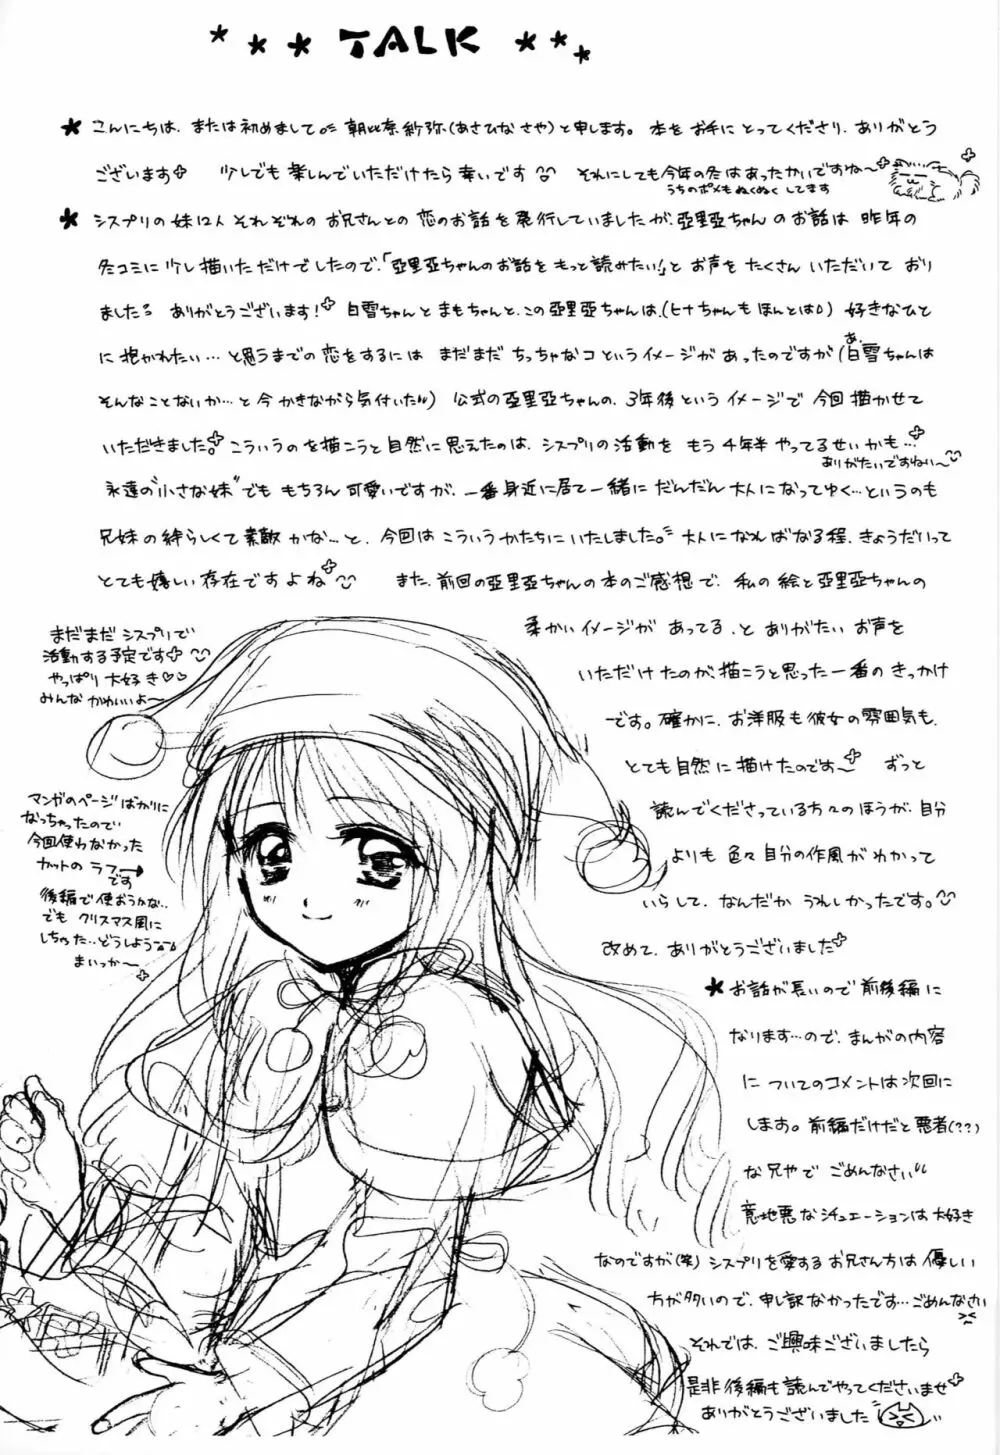 TALK
こんにちは、または初めまして 朝比奈紗弥(あさひな さや)と申します。 本をお手にとってくださり、ありがとう
ございます 少しでも楽しんでいただけたら幸いです それにしても今年の冬はあったかいですね〜
うちのポメもぬくぬくしてます
シスプリの妹12人 それぞれの お兄さんとの 恋のお話を発行していましたが、亞里亞ちゃんのお話は 昨年の
冬コミに少し描いただけでしたので、「亞里亞ちゃんのお話をもっと読みたい!」とお声をたくさん いただいて おり
ました ありがとうございます! 白雪ちゃんとまもちゃんと、この亞里亞ちゃんは、(ヒナちゃんもほんとは) 好きなひと
に抱かれたい…と思うまでの恋をするには まだまだ ちっちゃなコというイメージが あったのですが(あ、白雪ちゃんは
そんなことないか…と今かきながら気付いた) 公式の亞里亞ちゃんの、3年後というイメージで 今回描かせて
いただきました。こういうのを描こうと自然に思えたのは、シスプリの活動を もう4年半やってるせいかも…
ありがたいですねい〜
永遠の"小さな妹"でも もちろん可愛いですが、一番身近に居て一緒に だんだん 大人になってゆく…というのも
兄妹の絆らしくて素敵かな…と、今回は こういうかたちにいたしました。大人になればなる程、きょうだいって
とても嬉しい存在ですよね また、前回の亞里亞ちゃんの本のご感想で、私の絵と亞里亞ちゃんの
柔かいイメージが あってる、と ありがたい お声を
いただけたのが、描こうと思った一番のきっかけ
です。確かに、お洋服も彼女の雰囲気も、
とても自然に描けたのです〜 ずっと
読んでくださっている方々のほうが、自分
よりも 色々自分の作風がわかって
いらして、なんだか うれしかったです。
改めて、ありがとうございました
まだまだ シスプリで
活動する予定です
やっぱり 大好き♡♡
みんな かわいいよ〜
マンガのページばかりに
なっちゃったので
今回使わなかった
カットの ラフ→
です
後編で使おうかな..
でも クリスマス風に
しちゃった…どうしよう
まいっか〜
お話が長いので前後編に
なります…ので、まんがの内容
についてのコメントは次回に
します。前編だけだと悪者(??)
な兄やで ごめんなさい
意地悪なシチュエーションは大好き
なのですが(笑) シスプリを愛するお兄さん方は優しい
方が多いので、申し訳なかったです…ごめんなさい
それでは、ご興味ございましたら
是非後編も読んでやってくださいませ
ありがとうございました